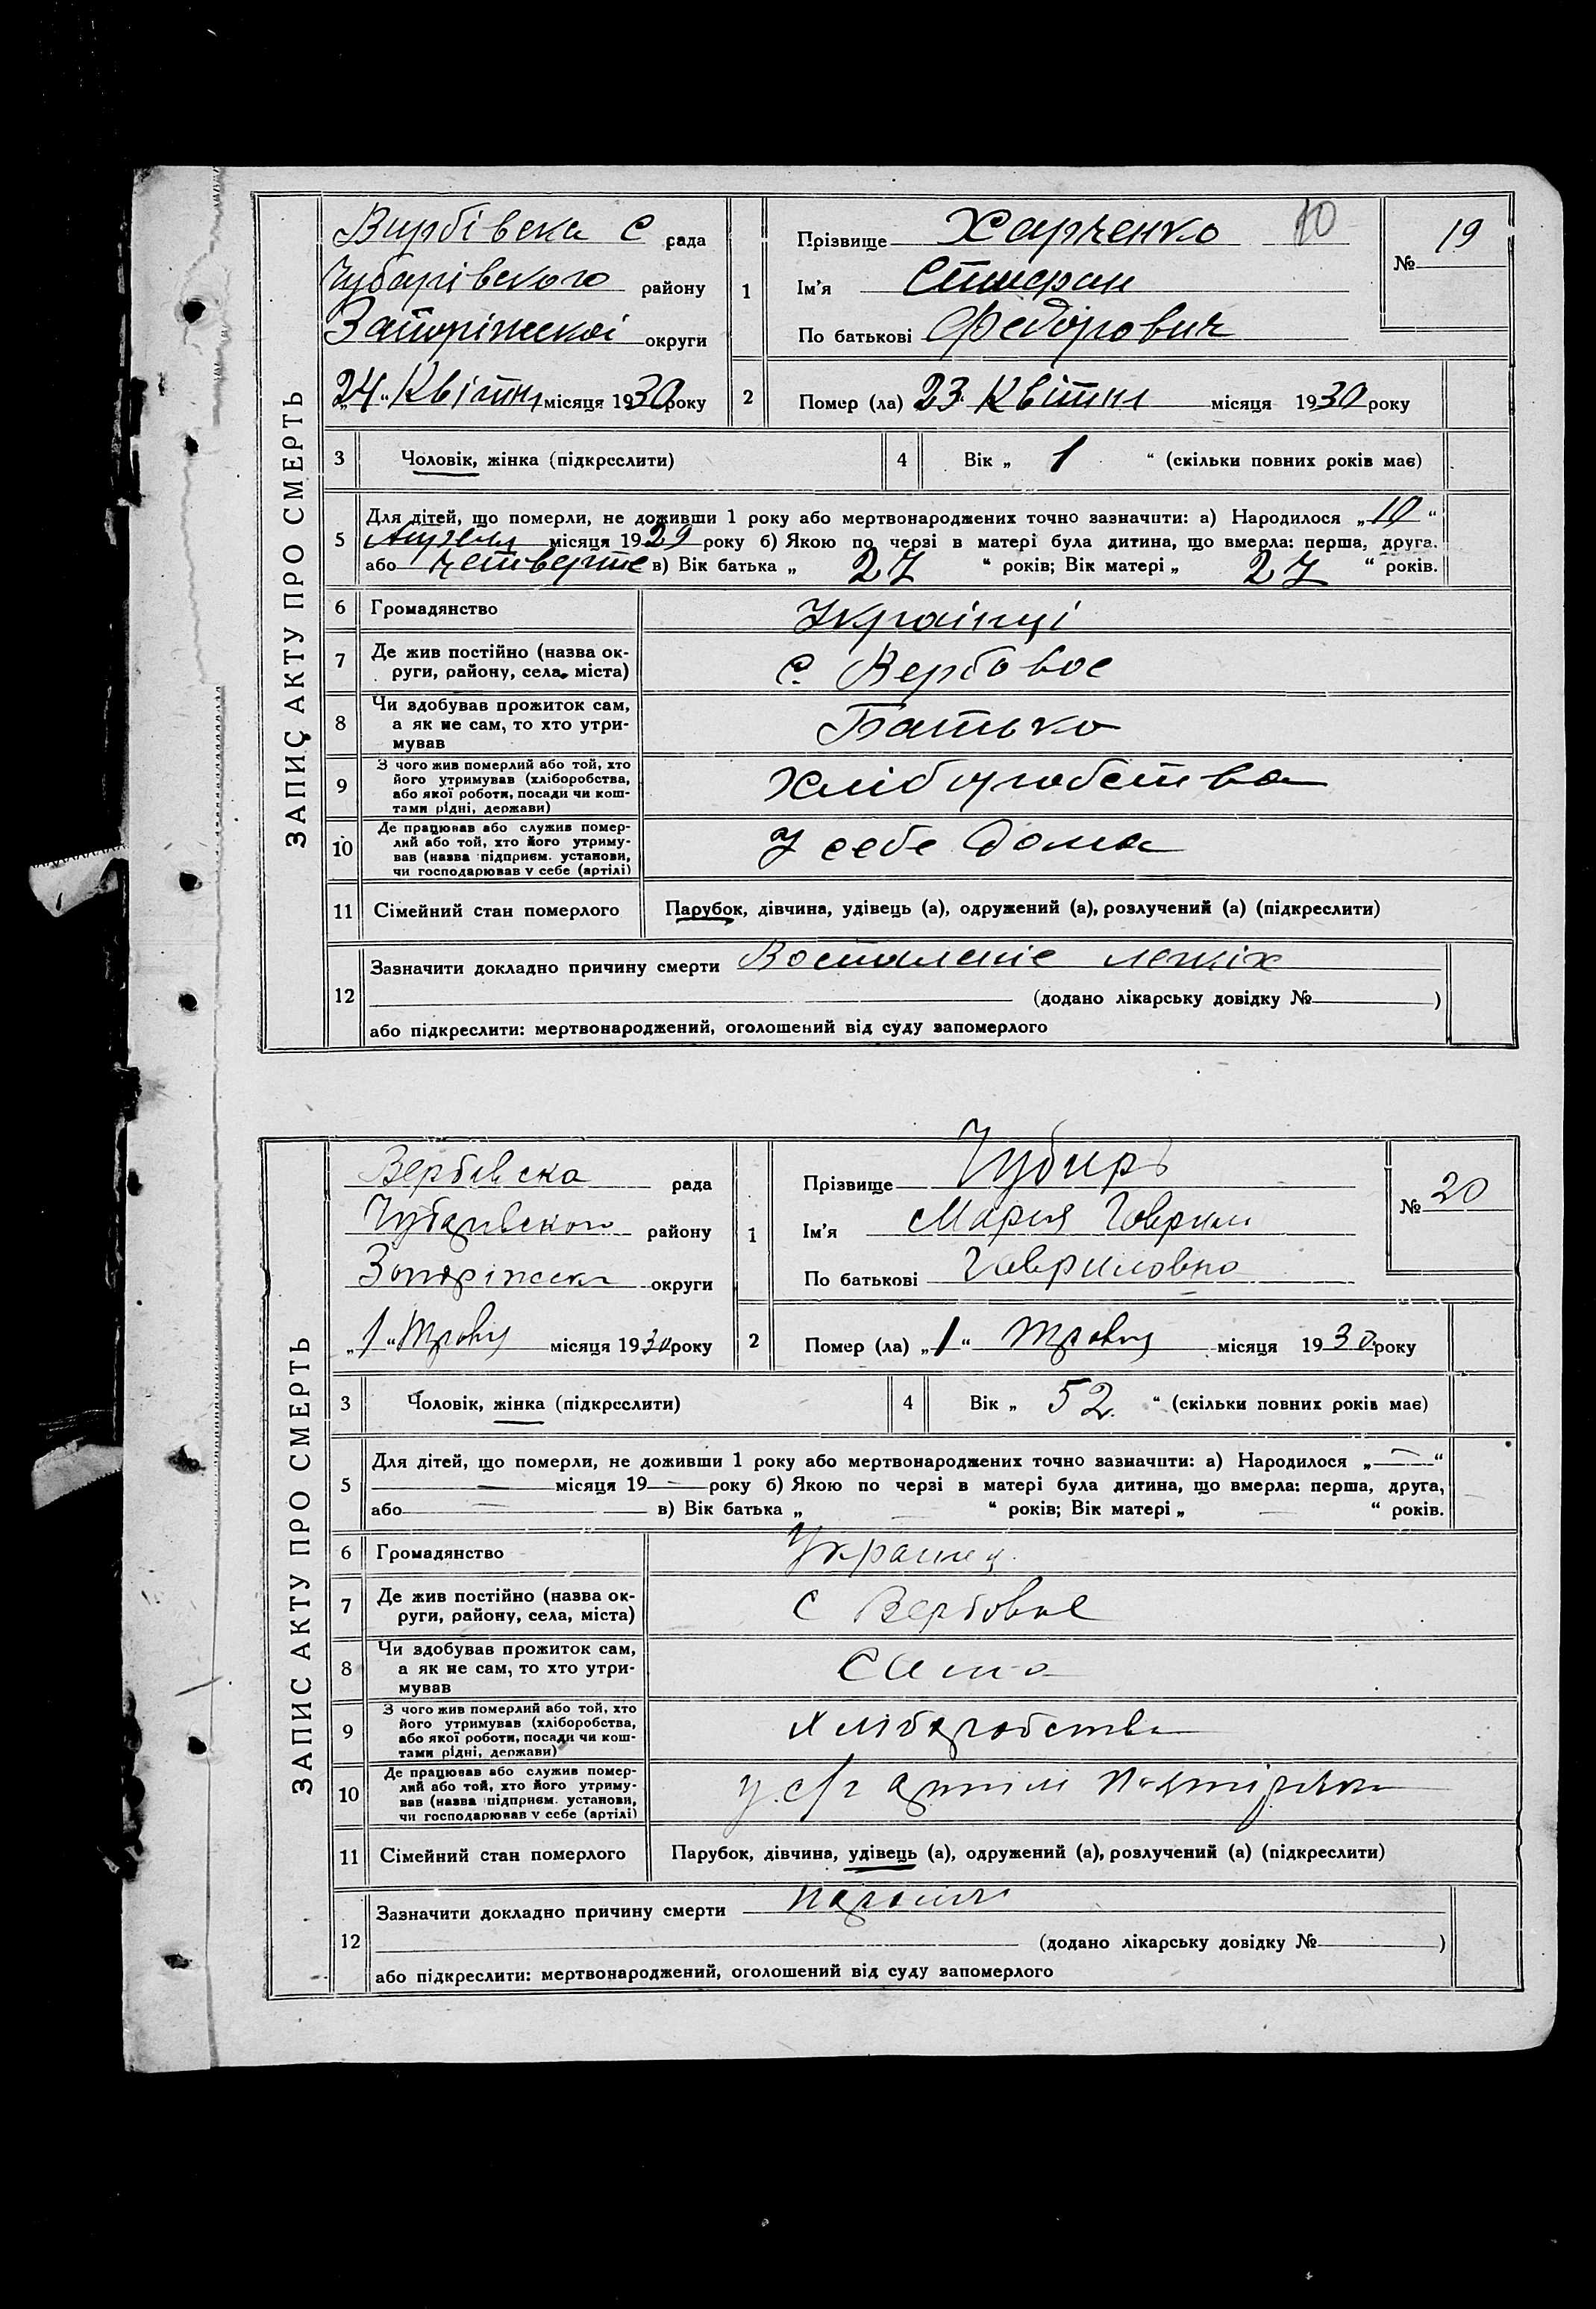 ЗАПИС АКТУ ПРО СМЕРТЬ
Вирбівська С рада
Чубарівського району
Запоріжскоі округи
„24“ Квітня місяця 1930 року
1
Прізвище Харченко 10
Ім'я Стефан
По батькові Федорович
№ 19
2 Помер (ла) 23 Квітня місяця 1930 року
3 Чоловік, жінка (підкреслити)
4 Вік „ 1 “ (скільки повних років має)
5 Для дітей, що померли, не доживши 1 року або мертвонароджених точно зазначити: а) Народилося „10“
Апреля місяця 1929 року б) Якою по черзі в матері була дитина, що вмерла: перша, друга.
або четверте в) Вік батька „ 27 “ років; Вік матері „ 27 “ років.
6 Громадянство Украінці
7 Де жив постійно (назва ок-
руги, району, села, міста) с. Вербовое
8 Чи здобував прожиток сам,
а як не сам, то хто утри-
мував Батько
9 З чого жив померлий або той, хто
його утримував (хліборобства,
або якої роботи, посади чи кош-
тами рідні, держави) Хліборобства
10 Де працював або служив помер-
лий або той, хто його утриму-
вав (назва підприєм. установи,
чи господарював у себе (артілі) У себе дома
11 Сімейний стан померлого Парубок, дівчина, удівець (а), одружений (а), розлучений (а) (підкреслити)
12 Зазначити докладно причину смерти Воспаление легкіх
(додано лікарську довідку № )
або підкреслити: мертвонароджений, оголошений від суду запомерлого
ЗАПИС АКТУ ПРО СМЕРТЬ
Вербівска рада
Чубарівского району
Запоріжска округи
„1“ Травня місяця 1930 року
1
Прізвище Чубирь
Ім'я Мария Гаврил
По батькові Гавриловно
№ 20
2 Помер (ла) „1“ Травня місяця 1930 року
3 Чоловік, жінка (підкреслити)
4 Вік „ 52 “ (скільки повних років має)
5 Для дітей, що померли, не доживши 1 року або мертвонароджених точно зазначити: а) Народилося „—“
— місяця 19— року б) Якою по черзі в матері була дитина, що вмерла: перша, друга,
або — в) Вік батька „ — “ років; Вік матері „ — “ років.
6 Громадянство Украинц
7 Де жив постійно (назва ок-
руги, району, села, міста) С Вербовое
8 Чи здобував прожиток сам,
а як не сам, то хто утри-
мував Сама
9 З чого жив померлий або той, хто
його утримував (хліборобства,
або якої роботи, посади чи кош-
тами рідні, держави) Хліборобства
10 Де працював або служив помер-
лий або той, хто його утриму-
вав (назва підприєм. установи,
чи господарював у себе (артілі) у с/г артілі
11 Сімейний стан померлого Парубок, дівчина, удівець (а), одружений (а), розлучений (а) (підкреслити)
12 Зазначити докладно причину смерти
(додано лікарську довідку № )
або підкреслити: мертвонароджений, оголошений від суду запомерлого